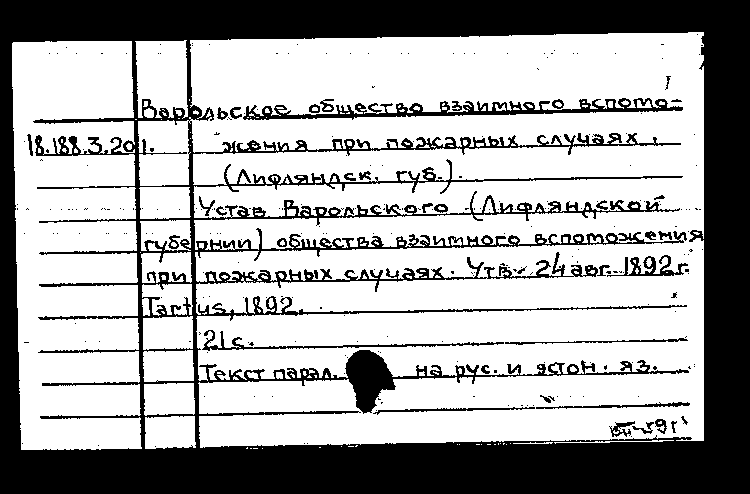 Варольское общество взаимного вспомо-
18.188.3.201. жения при пожарных случаях.
(Лифляндск. губ.).
Устав Варольского (Лифляндской
губернии) общества взаимного вспоможения
при пожарных случаях. Утв. 24 авг. 1892 г.
Tartus, 1892.
21 с.
Текст парал. на рус. и эстон. яз.